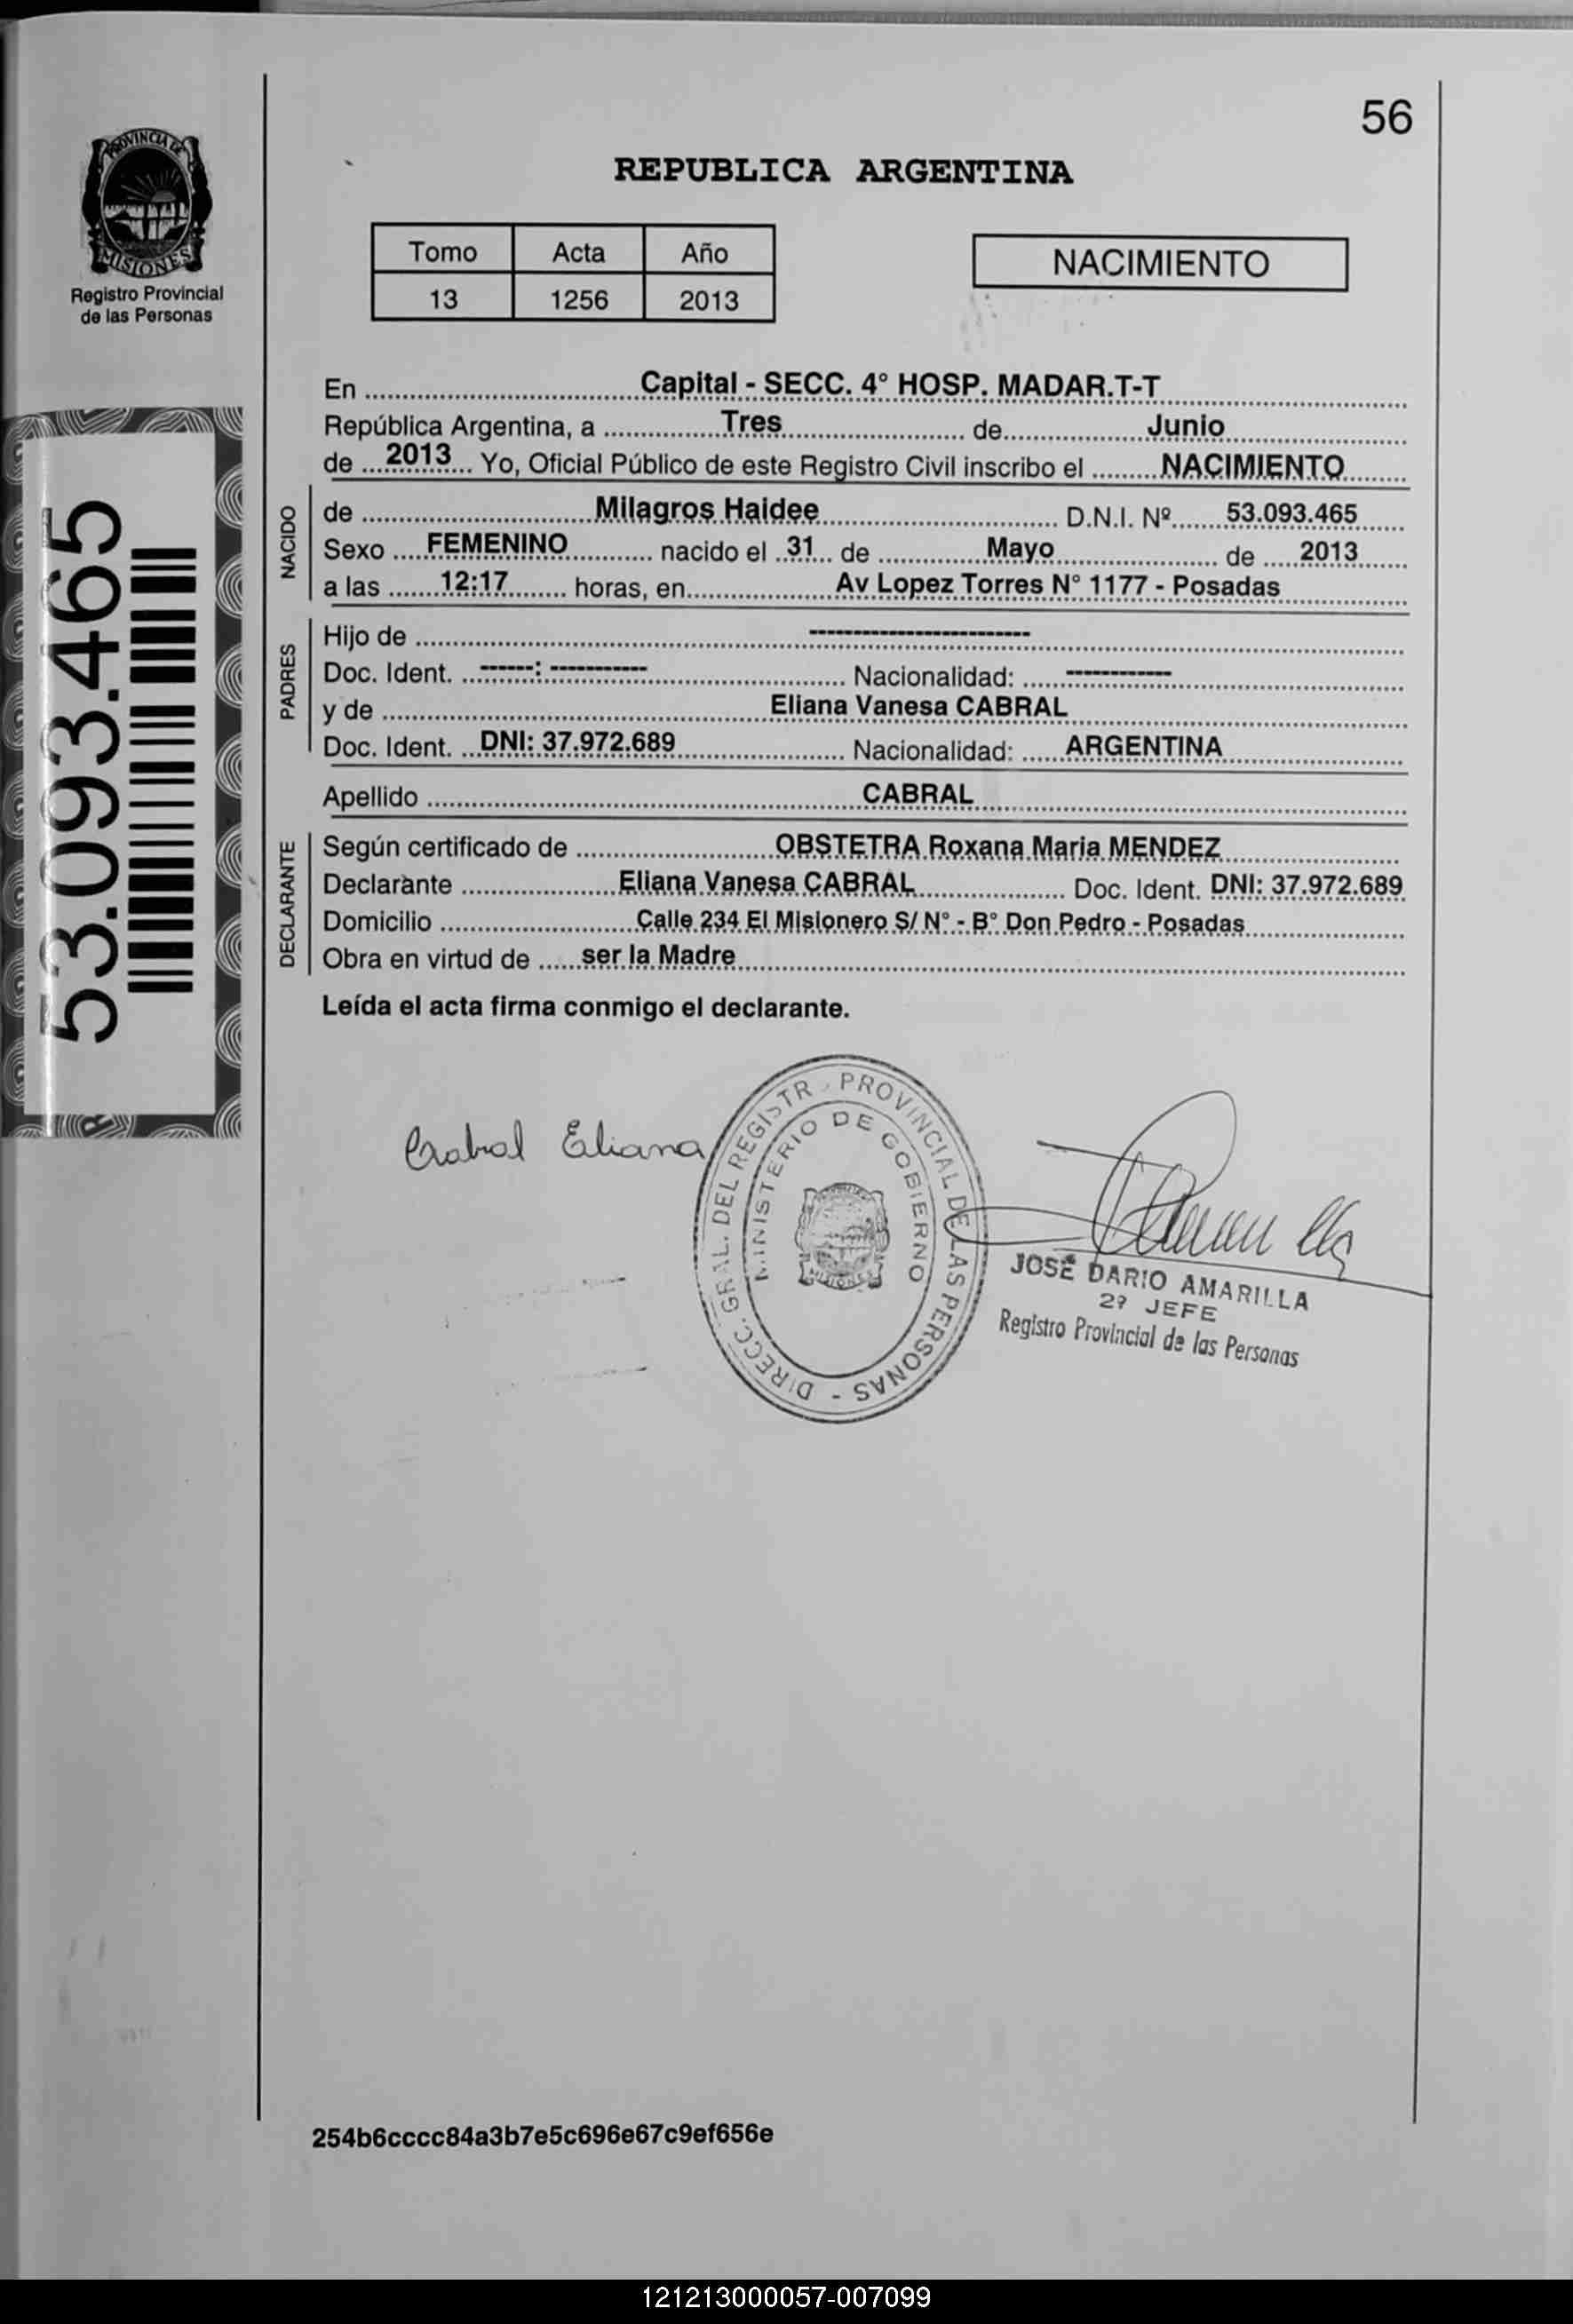 56
PROVINCIA DE
MISIONES
Registro Provincial
de las Personas
REPUBLICA ARGENTINA
Tomo Acta Año
13 1256 2013
NACIMIENTO
53.093.465
En Capital - SECC. 4° HOSP. MADAR.T-T
República Argentina, a Tres de Junio
de 2013 Yo, Oficial Público de este Registro Civil inscribo el NACIMIENTO
NACIDO
de Milagros Haidee D.N.I. Nº 53.093.465
Sexo FEMENINO nacido el 31 de Mayo de 2013
a las 12:17 horas, en Av Lopez Torres N° 1177 - Posadas
PADRES
Hijo de -------------------------
Doc. Ident. ------: ----------- Nacionalidad: ------------
y de Eliana Vanesa CABRAL
Doc. Ident. DNI: 37.972.689 Nacionalidad: ARGENTINA
Apellido CABRAL
DECLARANTE
Según certificado de OBSTETRA Roxana Maria MENDEZ
Declarante Eliana Vanesa CABRAL Doc. Ident. DNI: 37.972.689
Domicilio Calle 234 El Misionero S/ N° - B° Don Pedro - Posadas
Obra en virtud de ser la Madre
Leída el acta firma conmigo el declarante.
Cabral Eliana
DIRECC. GRAL. DEL REGISTR PROVINCIAL DE LAS PERSONAS -
MINISTERIO DE GOBIERNO
MISIONES
JOSÉ DARIO AMARILLA
2º JEFE
Registro Provincial de las Personas
254b6cccc84a3b7e5c696e67c9ef656e
121213000057-007099